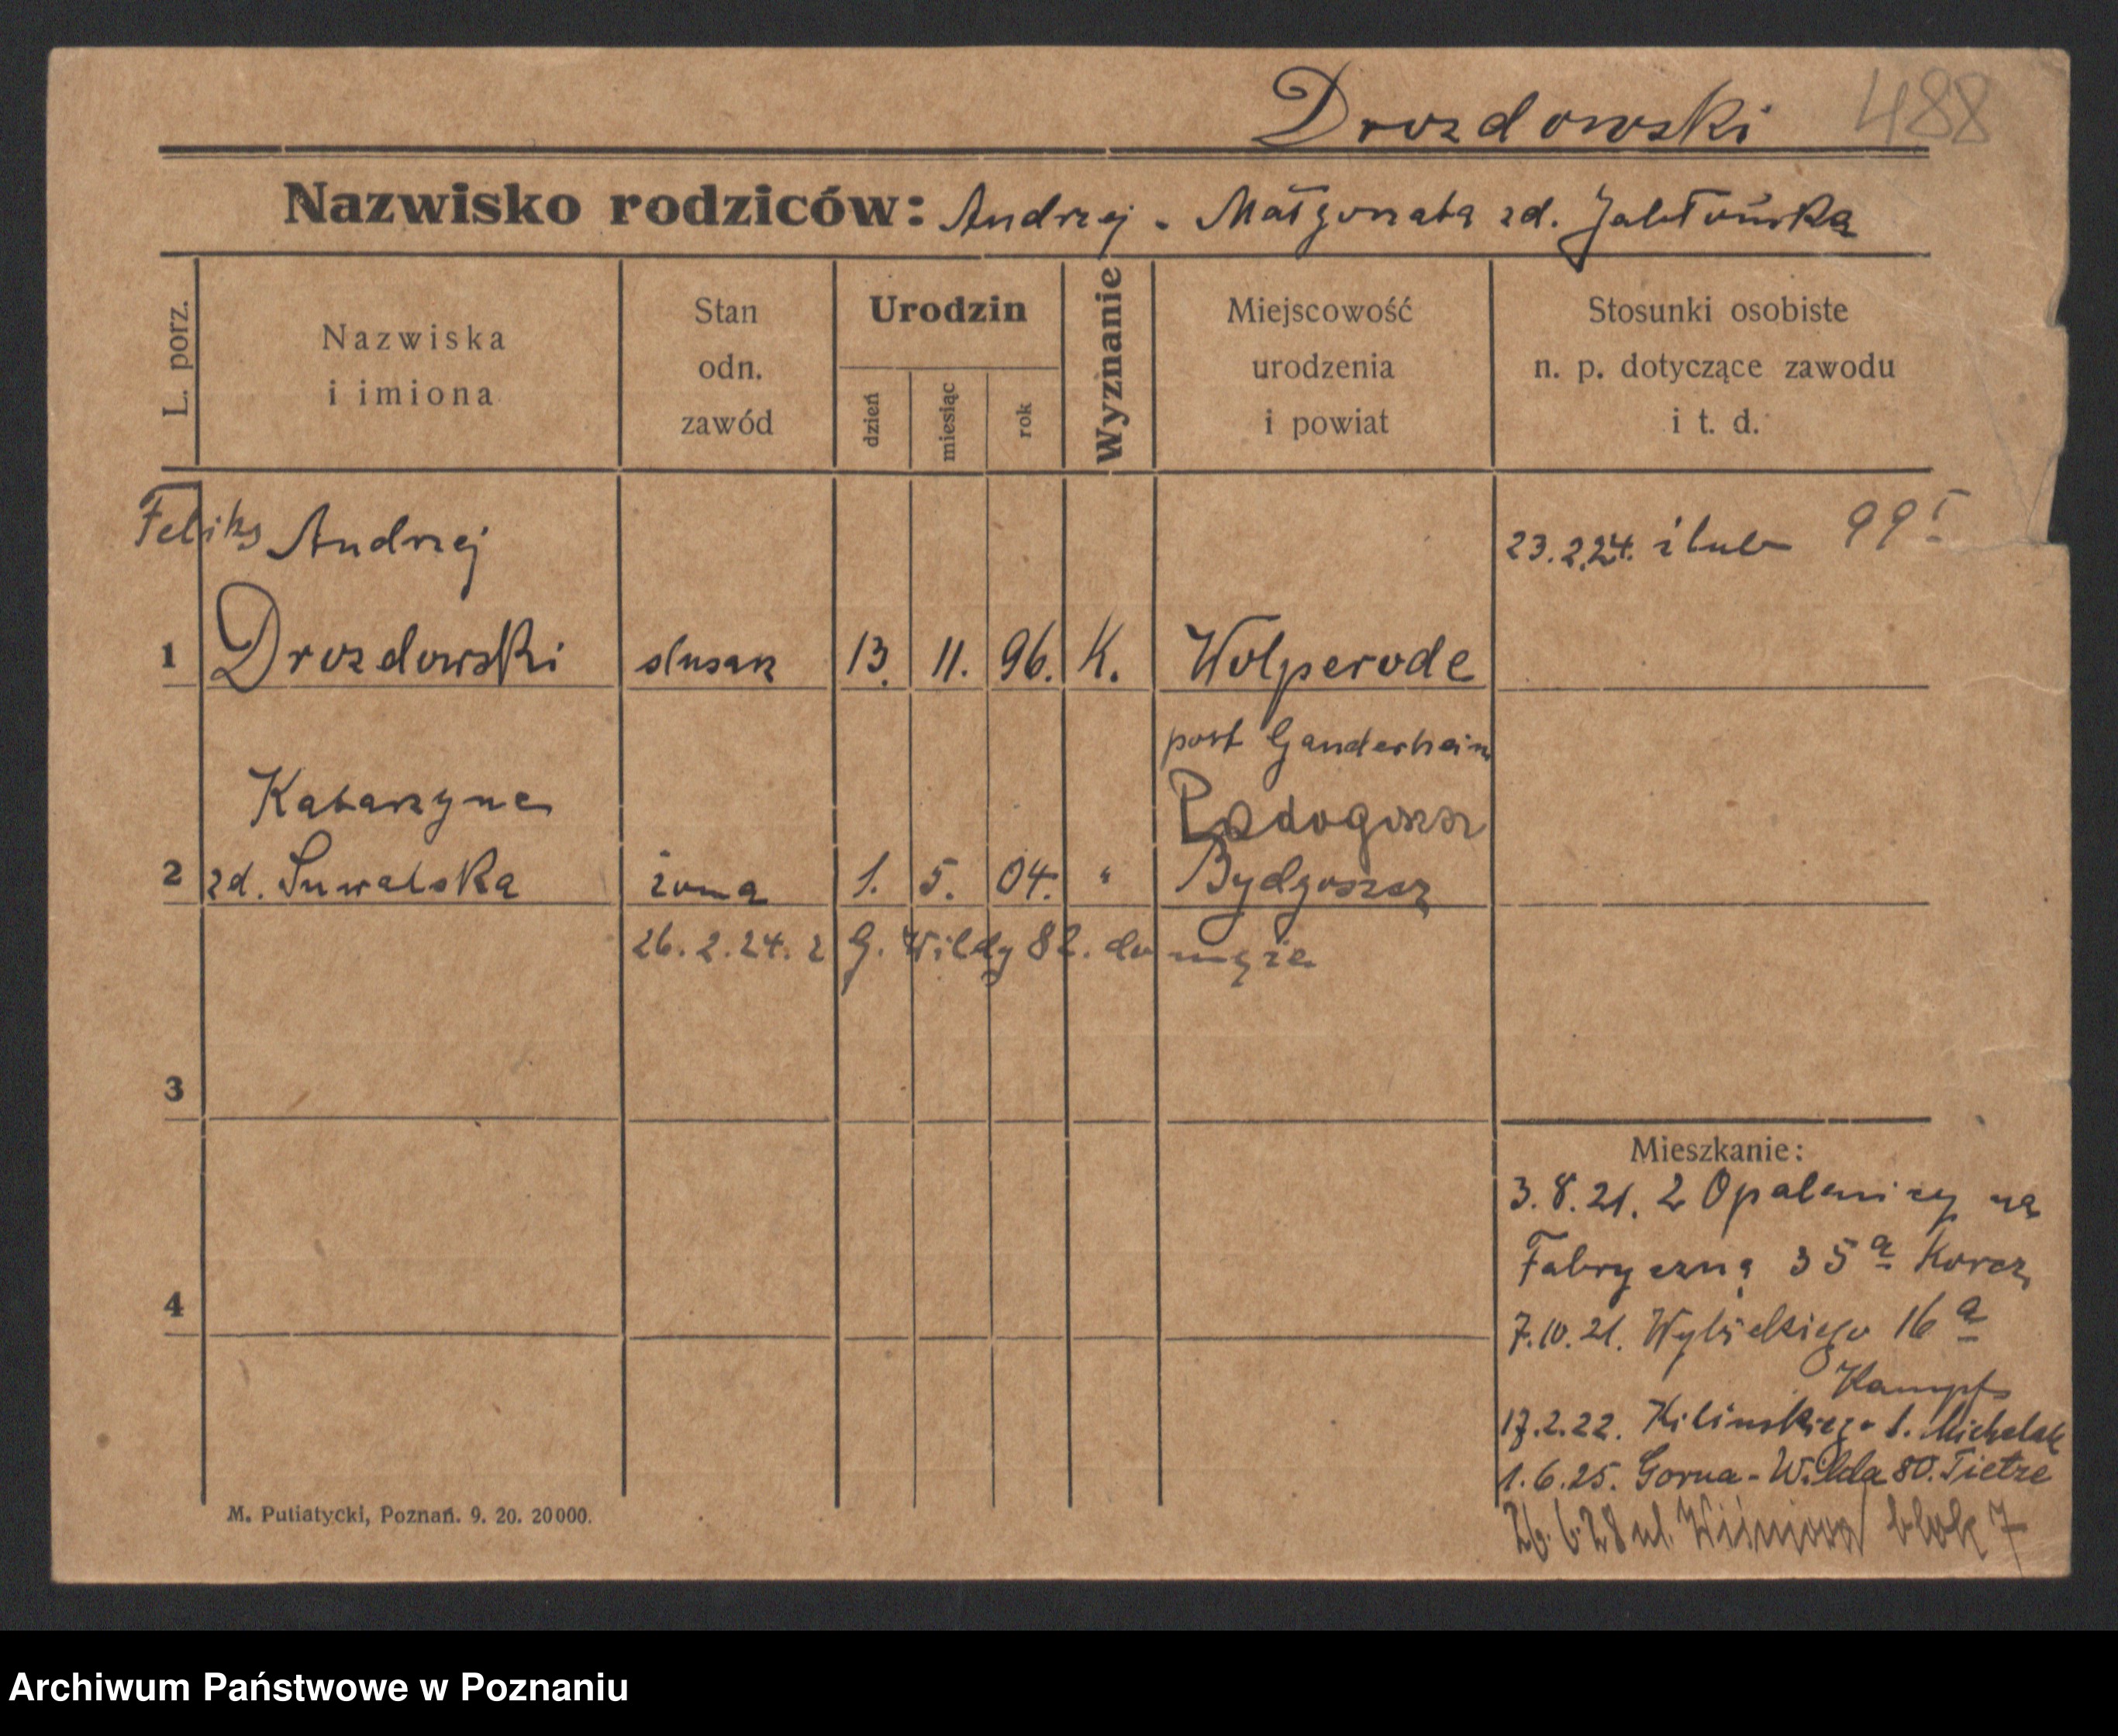 Drozdowski 488
Nazwisko rodziców: Andrzej - Małgorzata zd. Jabłońska
L. porz.
Nazwiska
i imiona
Stan
odn.
zawód
Urodzin
dzień
miesiąc
rok
Wyznanie
Miejscowość
urodzenia
i powiat
Stosunki osobiste
n. p. dotyczące zawodu
i t. d.
Feliks Andrzej
23.2.24. ślub 99
1 Drozdowski ślusarz 13. 11. 96. K. Wolperode
post Ganderheim
Katarzyna
2 zd. Suwalska żona 1. 5. 04. " Bydgoszcz
26.2.24. z G. Wildy 82. do męża
3
Mieszkanie:
3.8.21. z Opalenicy na
Fabryczną 35a Korcz
4
7.10.21. Wybickiego 16a
Kampf
17.2.22. Kilinskiego 1. Michalak
1.6.25. Gorna-Wilda 80. Tietze
26.6.28 ul. Wiśniowa blok 7
M. Putiatycki, Poznań. 9. 20. 20000.
Archiwum Państwowe w Poznaniu